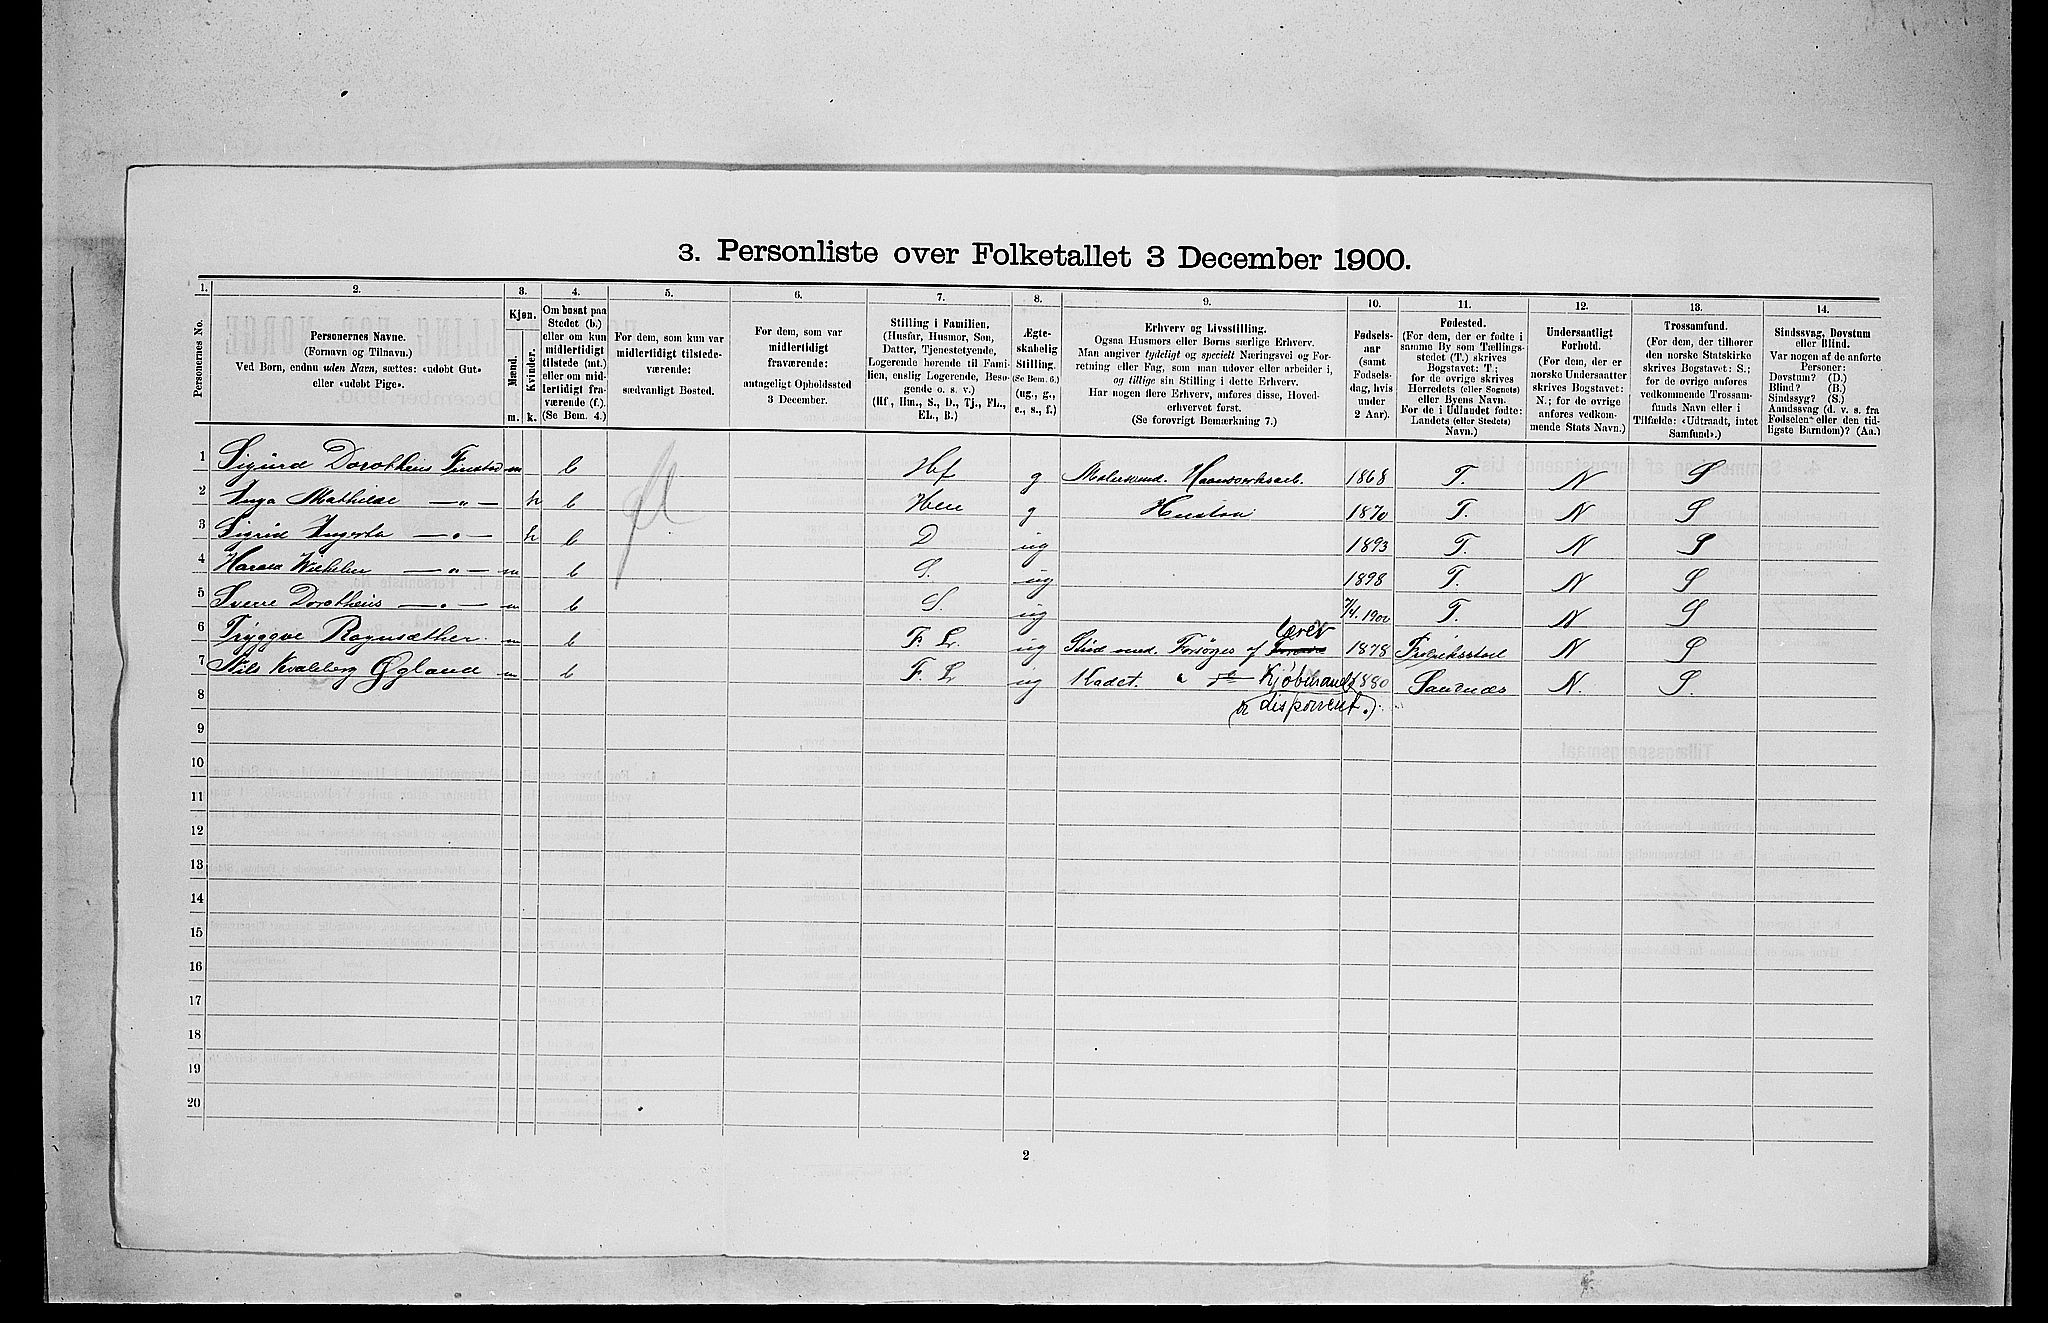 3. Personliste over Folketallet 3 December 1900.
1. 2. 3. 4. 5. 6. 7. 8. 9. 10. 11. 12. 13. 14.
Personernes No.
Personernes Navne.
(Fornavn og Tilnavn.)
Ved Børn, endnu uden Navn, sættes: «udøbt Gut»
eller «udøbt Pige».
Kjøn.
Mænd. Kvinder.
m. k.
Om bosat paa
Stedet (b.)
eller om kun
midlertidigt
tilstede (mt.)
eller om mid-
lertidigt fra-
værende (f.).
(Se Bem. 4.)
For dem, som kun var
midlertidigt tilstede-
værende:
sædvanligt Bosted.
For dem, som var
midlertidigt
fraværende:
antageligt Opholdssted
3 December.
Stilling i Familien.
(Husfar, Husmor, Søn,
Datter, Tjenestetyende,
Logerende hørende til Fami-
lien, enslig Logerende, Besø-
gende o. s. v.)
(Hf, Hm., S., D., Tj., FL.,
EL., B.)
Ægte-
skabelig
Stilling.
(Se Bem. 6.)
(ug., g.,
e., s., f.)
Erhverv og Livsstilling.
Ogsaa Husmors eller Børns særlige Erhverv.
Man angiver tydeligt og specielt Næringsvei og For-
retning eller Fag, som man udøver eller arbeider i,
og tillige sin Stilling i dette Erhverv.
Har nogen flere Erhverv, anføres disse, Hoved-
erhvervet først.
(Se forøvrigt Bemærkning 7.)
Fødsels-
aar
(samt
Fødsels-
dag, hvis
under
2 Aar).
Fødested.
(For dem, der er fødte i
samme By som Tællings-
stedet (T.) skrives
Bogstavet: T;
for de øvrige skrives
Herredets (eller Sognets)
eller Byens Navn.
For de i Udlandet fødte:
Landets (eller Stedets)
Navn.)
Undersaatligt
Forhold.
(For dem, der er
norske Undersaatter
skrives Bogstavet:
N.; for de øvrige
anføres vedkom-
mende Stats Navn.)
Trossamfund.
(For dem, der tilhører
den norske Statskirke
skrives Bogstavet: S.;
for de øvrige anføres
vedkommende Trossam-
funds Navn eller i
Tilfælde: «Udtraadt, intet
Samfund».)
Sindssvag, Døvstum
eller Blind.
Var nogen af de anførte
Personer:
Døvstum? (D.)
Blind? (B.)
Sindssyg? (S.)
Aandssvag (d. v. s. fra
Fødselen eller den tid-
ligste Barndom)? (Aa.)
1 Sigurd Dorotheus Finstad m b Hf g Malersvend. Haandverksarb. 1868 T. N S
2 Inga Mathilde —„— k b Hm g Hustru 1870 T. N S
3 Sigrid Ingerta —„— k b D ug 1893 T. N S
4 Harald Wilhelm —„— m b S. ug 1898 T. N S
5 Sverre Dorotheus —„— m b S. ug 7/4 1900 T. N S
6 Tryggve Rognsæther. m b F. L. ug Stud med. Forsørges af Lærer 1878 Fredriksstad N S
7 Nils Kvalberg Øgland m b F. L ug Kadet. „ do Kjøbmand 1880 Sandnes N. S.
(& disponent.)
8
9
10
11
12
13
14
15
16
17
18
19
20
2